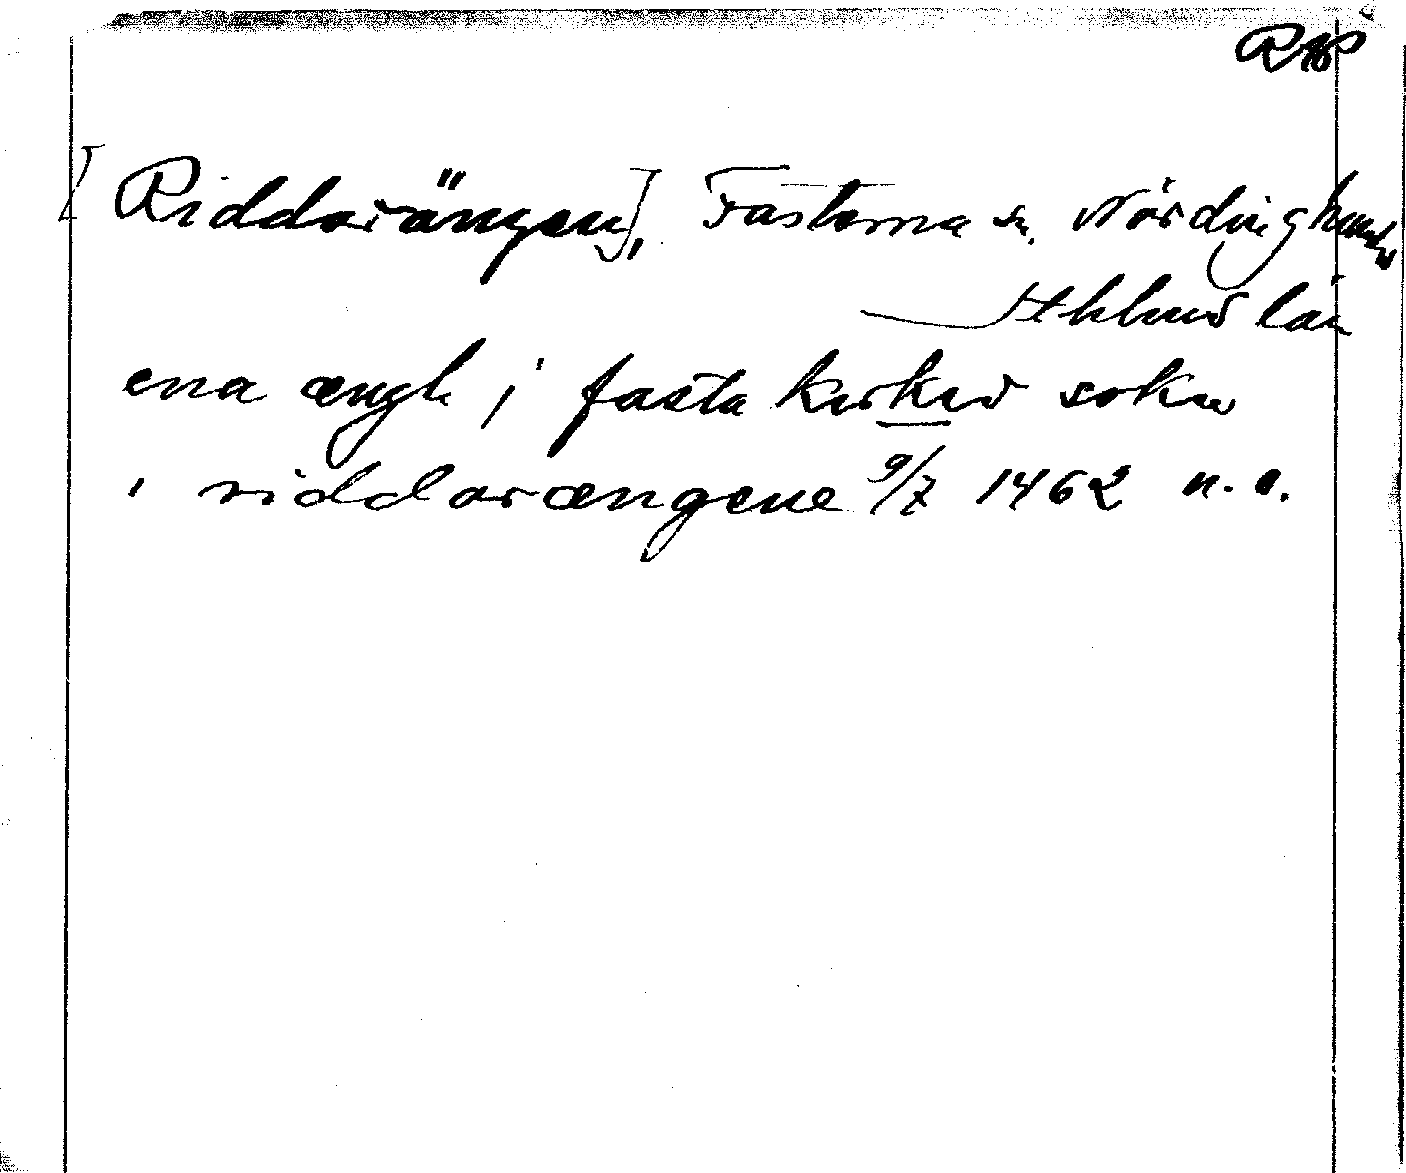 RAP
[Riddarängen], Fasterna sn. Närdinghundra
Sthlms län
ena ængh j fasta kirkio sokn
i riddarængene 9/7 1462 n. a.